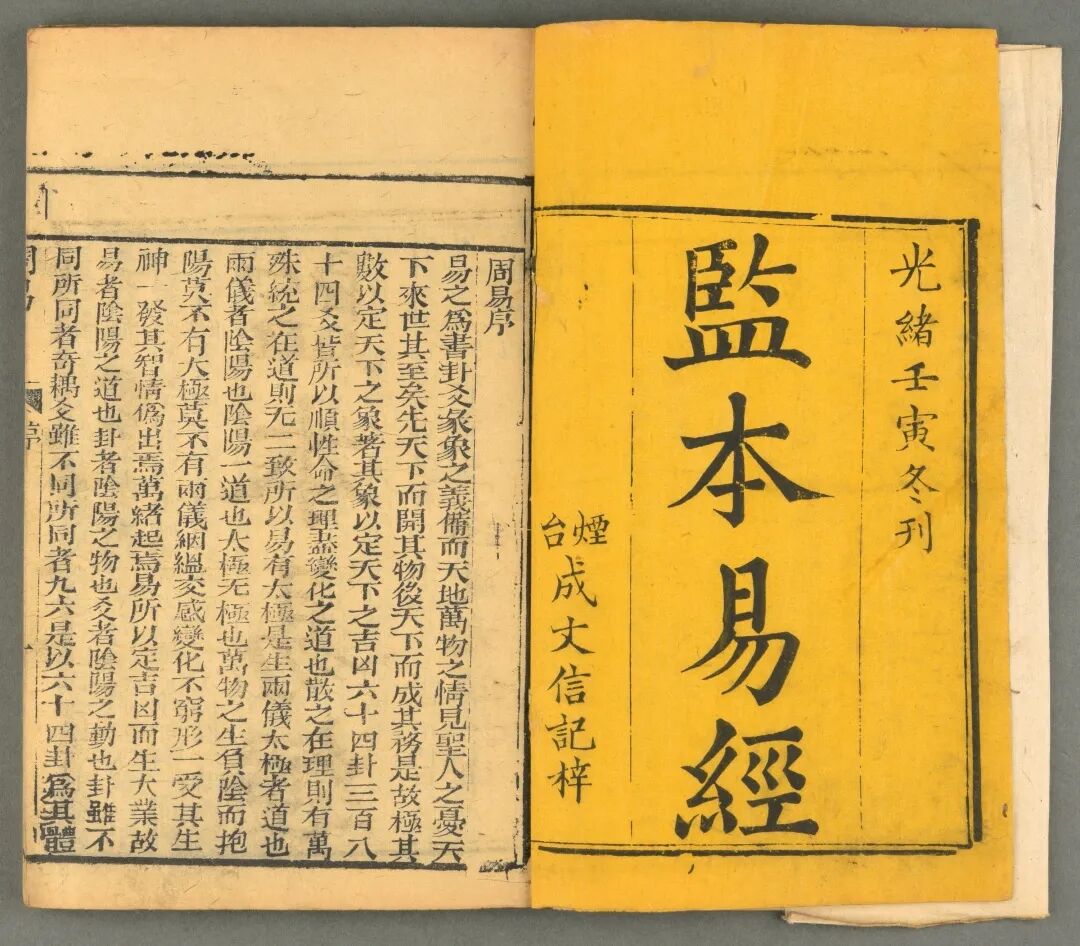 光緒壬寅冬刊
監本易經
煙台成文信記梓
周易序
易之為書卦爻彖象之義備而天地萬物之情見聖人之憂天
下來世其至矣先天下而開其物後天下而成其務是故極其
數以定天下之象著其象以定天下之吉凶六十四卦三百八
十四爻皆所以順性命之理盡變化之道也散之在理則有萬
殊統之在道則无二致所以易有太極是生兩儀太極者道也
兩儀者陰陽也陰陽一道也太極无極也萬物之生負陰而抱
陽莫不有太極莫不有兩儀絪縕交感變化不窮形一受其生
神一發其智情偽出焉萬緒起焉易所以定吉凶而生大業故
易者陰陽之道也卦者陰陽之物也爻者陰陽之動也卦雖不
同所同者奇耦爻雖不同所同者九六是以六十四卦為其體
周易 序 一